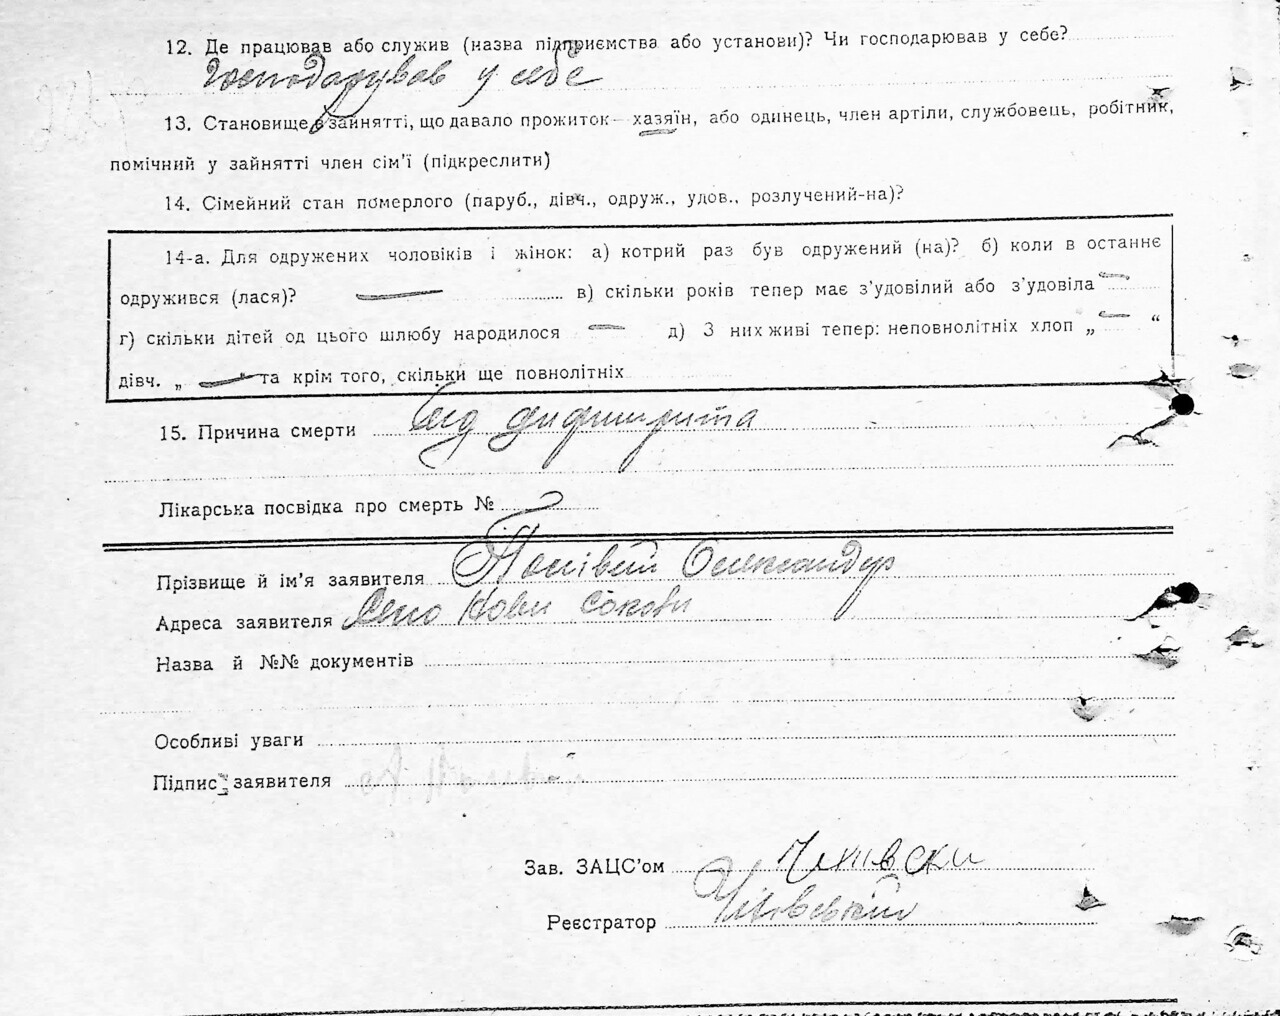 12. Де працював або служив (назва підприємства або установи)? Чи господарював у себе?
Господарував у себе
13. Становище в зайнятті, що давало прожиток – хазяїн, або одинець, член артіли, службовець, робітник,
помічний у зайнятті член сім’ї (підкреслити)
14. Сімейний стан померлого (паруб., дівч., одруж., удов., розлучений-на)?
14-а. Для одружених чоловіків і жінок: а) котрий раз був одружений (на)? б) коли в останнє
одружився (лася)? — в) скільки років тепер має з’удовілий або з’удовіла —
г) скільки дітей од цього шлюбу народилося — д) З них живі тепер: неповнолітніх хлоп „ — “
дівч. „ — та крім того, скільки ще повнолітніх
15. Причина смерти Від дифтирита
Лікарська посвідка про смерть №
Прізвище й ім’я заявителя Олександер
Адреса заявителя Село Нови
Назва й №№ документів
Особливі уваги
Підпис заявителя
Зав. ЗАЦС’ом
Реєстратор